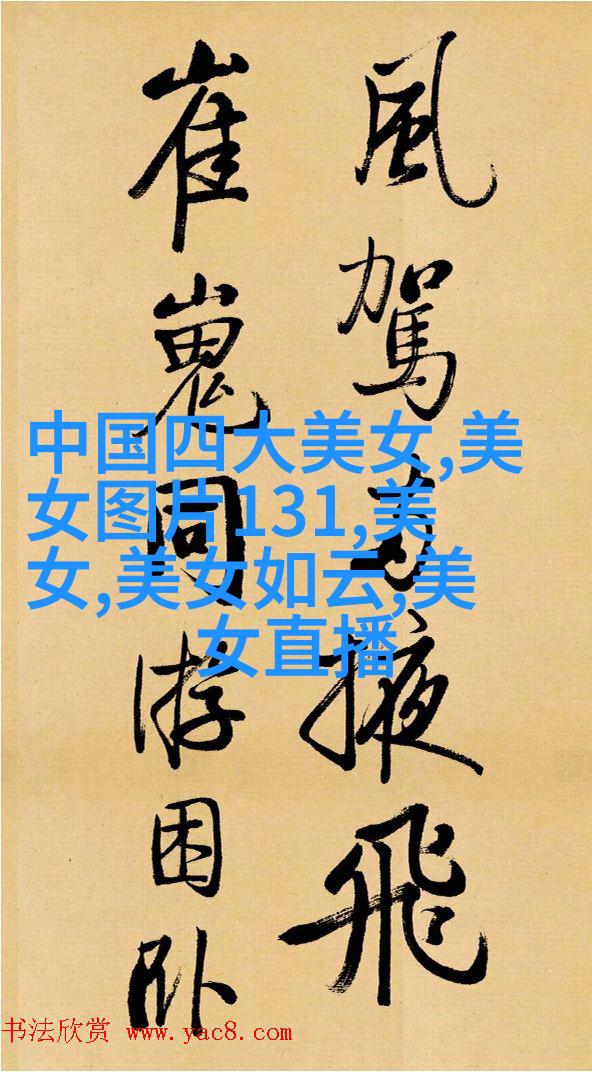 風駕掖飛
崔嵬同游困卧
中国四大美女,美
女图片131,美
女,美女如云,美
女直播
书法欣赏 www.yac8.com